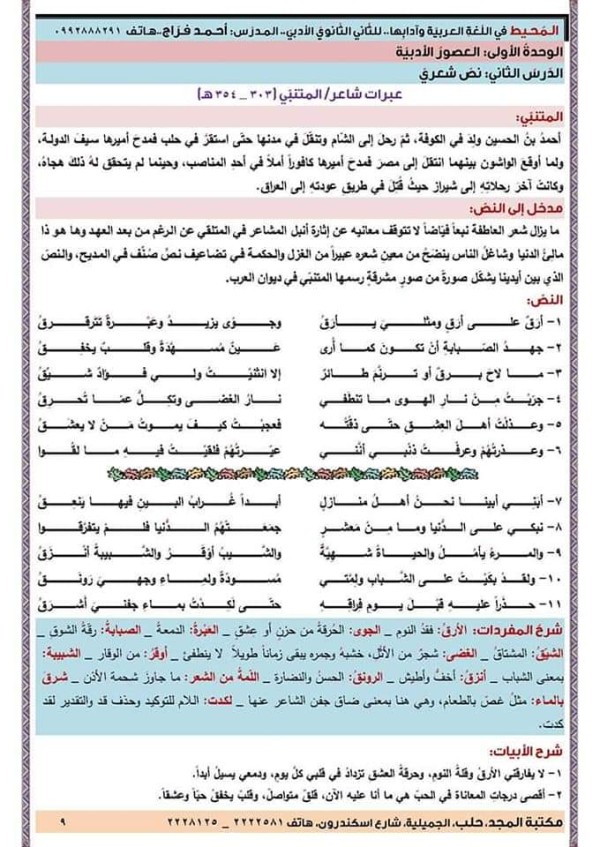 المحيط في اللغة العربية وآدابها.. للثاني الثانوي الأدبي.. المدرس: أحمد فراج..هاتف ٠٩٩٢٨٨٨٢٩١
الوحدة الأولى: العصور الأدبية
الدرس الثاني: نص شعري
عبرات شاعر/ المتنبي (٣٠٣ _ ٣٥٤ هـ)
المتنبي:
أحمدُ بنُ الحسين ولِدَ في الكوفة، ثمّ رحلَ إلى الشّام وتنقّلَ في مدنها حتى استقرَّ في حلب فمدحَ أميرها سيفَ الدولة،
ولما أوقعَ الواشون بينهما انتقلَ إلى مصرَ فمدحَ أميرها كافوراً أملاً في أحدِ المناصب، وحينما لم يتحقق لهُ ذلكَ هجاهُ،
وكانتْ آخرَ رحلاتِهِ إلى شيراز حيثُ قُتلَ في طريقِ عودتهِ إلى العراق.
مدخل إلى النص:
ما يزال شعر العاطفة نبعاً فيّاضاً لا تتوقف معانيه عن إثارة أنبل المشاعر في المتلقي عن الرغم من بعد العهد وها هو ذا
مالئُ الدنيا وشاغلُ الناس ينضحُ من معينِ شعره عبيراً من الغزل والحكمة في تضاعيف نصٍّ صُنّف في المديح، والنصّ
الذي بين أيدينا يشكّل صورةً من صورٍ مشرقةٍ رسمها المتنبي في ديوان العرب.
النص:
١- أرقٌ علــى أرقٍ ومثلــي يــأرقُ وجــوًى يزيــدُ وعَبْــرةٌ تترقــرقُ
٢- جهدُ الصّبابةِ أنْ تكــونَ كمــا أُرى عَــينٌ مســهّدةٌ وقلــبٌ يخفــقُ
٣- مــا لاحَ بــرقٌ أو ترنّــمَ طــائرٌ إلا انثنيــتُ ولــي فــؤادٌ شــيّقُ
٤- جرّبتُ مِنْ نارِ الهوى ما تنطفي نــارُ الغضــى وتكــلُّ عمّــا تُحــرقُ
٥- وعذلتُ أهلَ العِشقِ حتّى ذقْتُهُ فعجبتُ كيــفَ يمــوتُ مَــنْ لا يعشــقُ
٦- وعذرتُهُمْ وعرفْتُ ذنْبي أنّني عيّــرتُهُمْ فلقيْــتُ فيــهِ مــا لقُــوا
٧- أبَني أبينا نحنُ أهلُ منازلٍ أبــداً غُــرابُ البــينِ فيهــا ينعــقُ
٨- نبكي على الدُّنيا وما مِنْ معشرٍ جمعَــتْهُمُ الــدُّنيا فلــم يتفرّقــوا
٩- والمرءُ يأملُ والحياةُ شهيّةٌ والشّــيبُ أوْقــرُ والشّــبيبةُ أنْــزقُ
١٠- ولقدْ بكيْتُ على الشّبابِ ولِمّتي مُســودّةٌ ولِمــاءِ وجهــيَ رونَــقُ
١١- حذَراً عليهِ قبلَ يومِ فِراقِهِ حتّــى لَكِــدْتُ بمــاءِ جفنــيَ أشــرقُ
شرح المفردات: الأرقُ: فقدُ النوم _ الجوى: الحُرقةُ من حزنٍ أو عشقٍ _ العَبْرةُ: الدمعةُ _ الصبابةُ: رقّةُ الشوقِ _
الشيّقُ: المشتاقُ _ الغضى: شجرٌ من الأثْلِ، خشبهُ وجمره يبقى زماناً طويلاً لا ينطفئ _ أوقرُ: من الوقارِ _ الشبيبة:
بمعنى الشباب _ أنزقُ: أخفُّ وأطيش _ الرونقُ: الحسنُ والنضارة _ اللّمةُ من الشعر: ما جاوزَ شحمةَ الأذن _ شرقَ
بالماء: مثلُ غصَّ بالطعام، وهي هنا بمعنى ضاقَ جفن الشاعر عنها _ لكدتُ: اللام للتوكيد وحذف قد والتقدير لقد
كدت.
شرح الأبيات:
١- لا يفارقني الأرقُ وقلّة النوم، وحرقةُ العشق تزدادُ في قلبي كلّ يومٍ، ودمعي يسيلُ أبداً.
٢- أقصى درجاتِ المعاناةِ في الحبّ هي ما أنا عليه الآن، قلقٌ متواصلٌ، وقلبٌ يخفقُ حبّاً وعشقاً.
مكتبة المجد، حلب، الجميلية، شارع اسكندرون، هاتف ٢٢٢٢٥٨١ _ ٢٢٢٨١٢٥ ٩